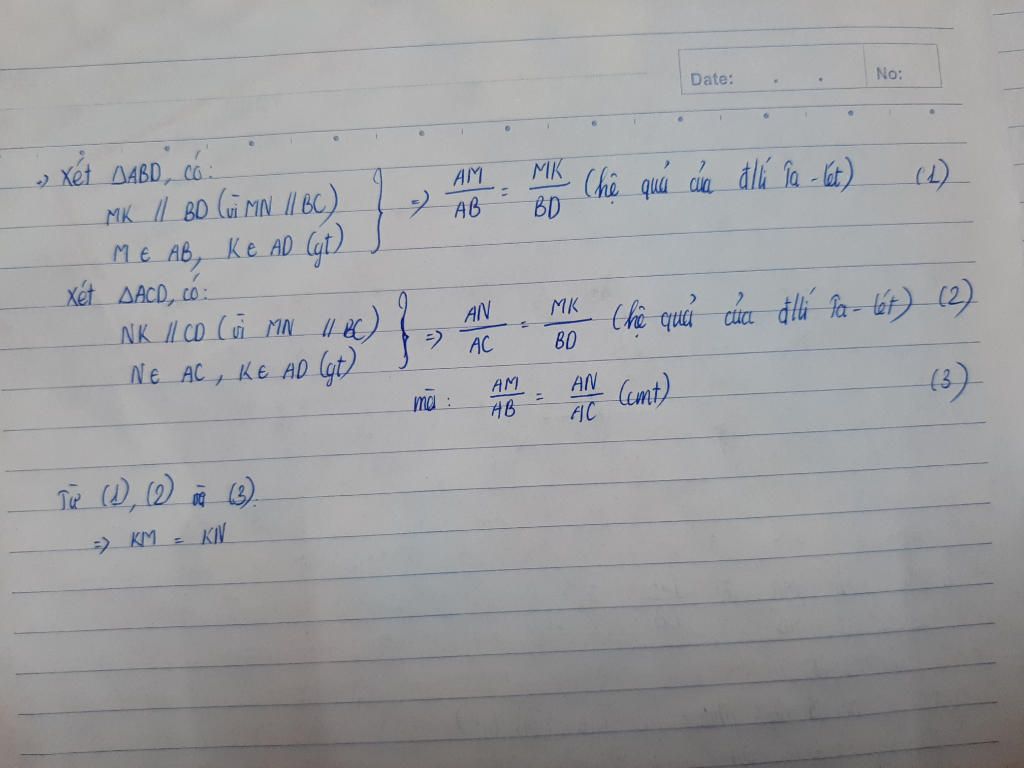 Date: . . No:
=> Xét ΔABD, có:
MK // BD (vì MN // BC)
M ∈ AB, K ∈ AD (gt)
} => AM/AB = MK/BD (hệ quả của đ/lí Ta-lét) (1)
Xét ΔACD, có:
NK // CD (vì MN // BC)
N ∈ AC, K ∈ AD (gt)
} => AN/AC = MK/BD (hệ quả của đ/lí Ta-lét) (2)
mà: AM/AB = AN/AC (cmt) (3)
Từ (1), (2) và (3).
=> KM = KN